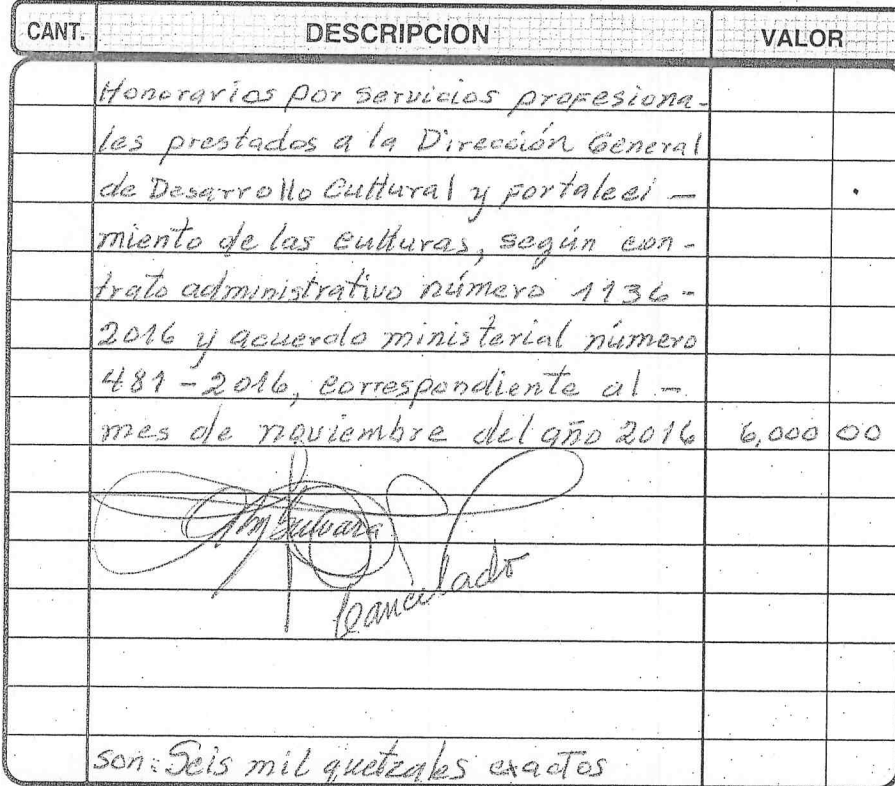 CANT. DESCRIPCION VALOR
Honorarios por servicios profesiona-
les prestados a la Dirección General
de Desarrollo Cultural y fortaleci-
miento de las culturas, según con-
trato administrativo número 1136-
2016 y acuerdo ministerial número
481-2016, correspondiente al-
mes de noviembre del año 2016 6,000 00
Cancelado
son: Seis mil quetzales exactos